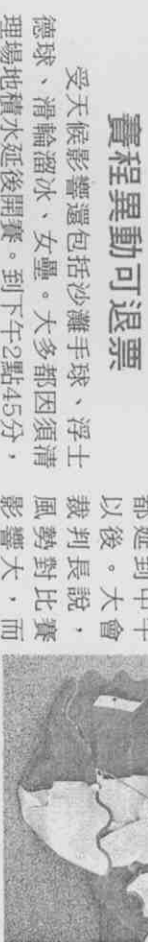 賽程異動可退票
受天候影響還包括沙灘手球、浮士
德球、滑輪溜冰、女壘。大多都因須清
理場地積水延後開賽。到下午2點45分，
都延到中午
以後。大會
裁判長說，
風勢對比賽
影響大，而